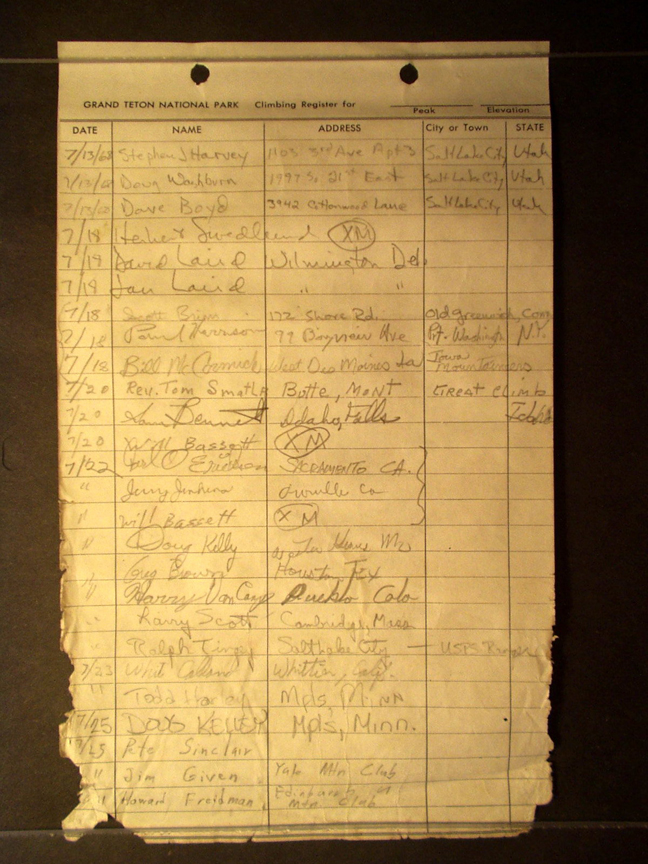 GRAND TETON NATIONAL PARK Climbing Register for
Peak Elevation
DATE NAME ADDRESS City or Town STATE
7/13/68 Stephen J Harvey 1103 3rd Ave Apt 3 Salt Lake City Utah
7/13/68 Doug Washburn 1997 So. 21st East Salt Lake City Utah
7/13/68 Dave Boyd 3942 Cottonwood Lane Salt Lake City Utah
7/18 Herbert Swedlund XM
7/18 David Laird Wilmington Del.
7/18 Jan Laird " "
7/18 Scott 172 Shore Rd. Old Greenwich, Conn
7/18 Paul Harrison 77 Bayview Ave Prt. Washington N.Y.
7/18 Bill McCormick West Des Moines Ia Iowa Mountaineers
7/20 Rev. Tom Butte, MONT Great Climb
7/20 Bennett Idaho Falls Idaho
7/20 Will Bassett XM
7/22 Erickson SACRAMENTO CA.
" Jerry Jenkins Ca
" Will Bassett XM
" Doug Kelly
" Greg Brown Houston, TEX
" Harry Van Pueblo Colo
" Larry Scott Cambridge, Mass
" Ralph Salt Lake City —
7/23 Whit Whittier, Calif.
" Todd Mpls, MINN
7/25 DOUG KELLEY Mpls, Minn.
7/25 Pete Sinclair
" Jim Given Yale Mtn Club
" Howard Freidman Edinburgh U
Mtn Club